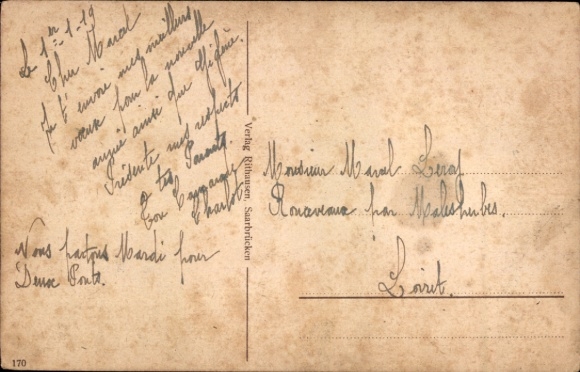 Le 1er-1-19
Cher Marcel
Je t'envoie mes meilleurs
vœux pour la nouvelle
année ainsi que
Présente mes respects
à tes Parents.
Ton Camarade
Charlot
Nous partons Mardi pour
Deux Ponts.
Verlag Rithausen, Saarbrücken
Monsieur Marcel
par Malesherbes.
Loiret.
170